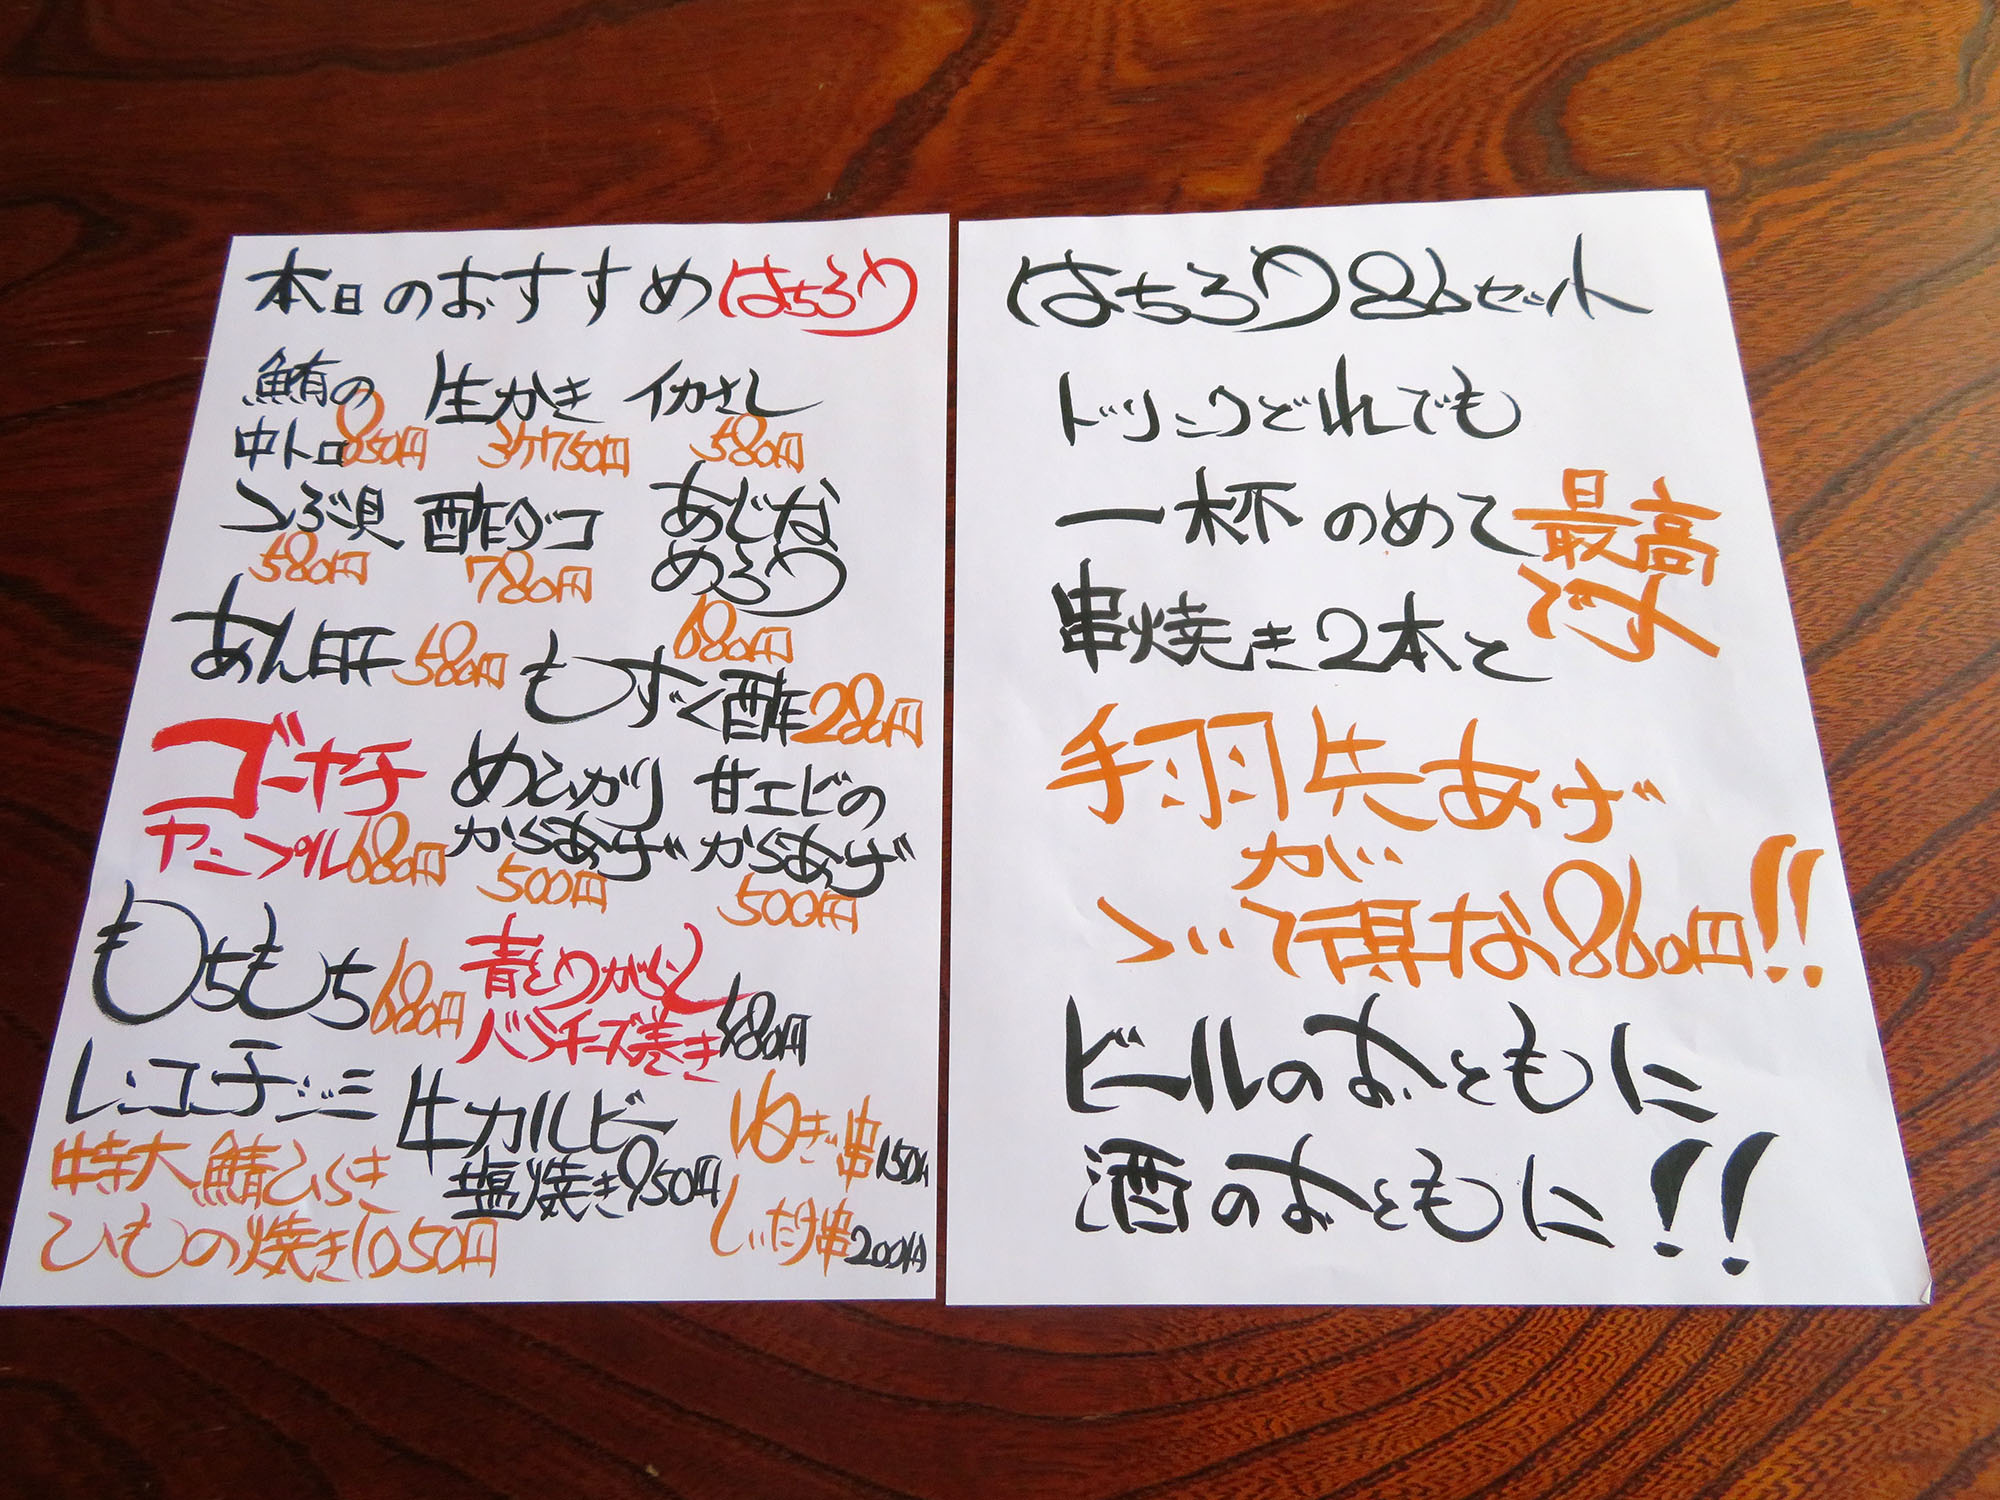 本日のおすすめはちろり
鮪の
中トロ850円
生かき
3ケ750円
イカさし
580円
つぶ貝
580円
酢ダコ
780円
あじな
めろり
680円
あん肝580円
もずく酢280円
ゴーヤチ
ャンプル680円
めひかり
からあげ
500円
甘エビの
からあげ
500円
もちもち680円
レンコンチヂミ
青とうがらし
バラチーズ巻き580円
特大鯖ひらき
ひもの焼き1050円
牛カルビー
塩焼き950円
ねぎ串150円
しいたけ串200円
はちろり86セット
ドリンクどれでも
一杯のめて最高
です
串焼き2本と
手羽先あげ
がい
ついて得な860円!!
ビールのおともに
酒のおともに!!